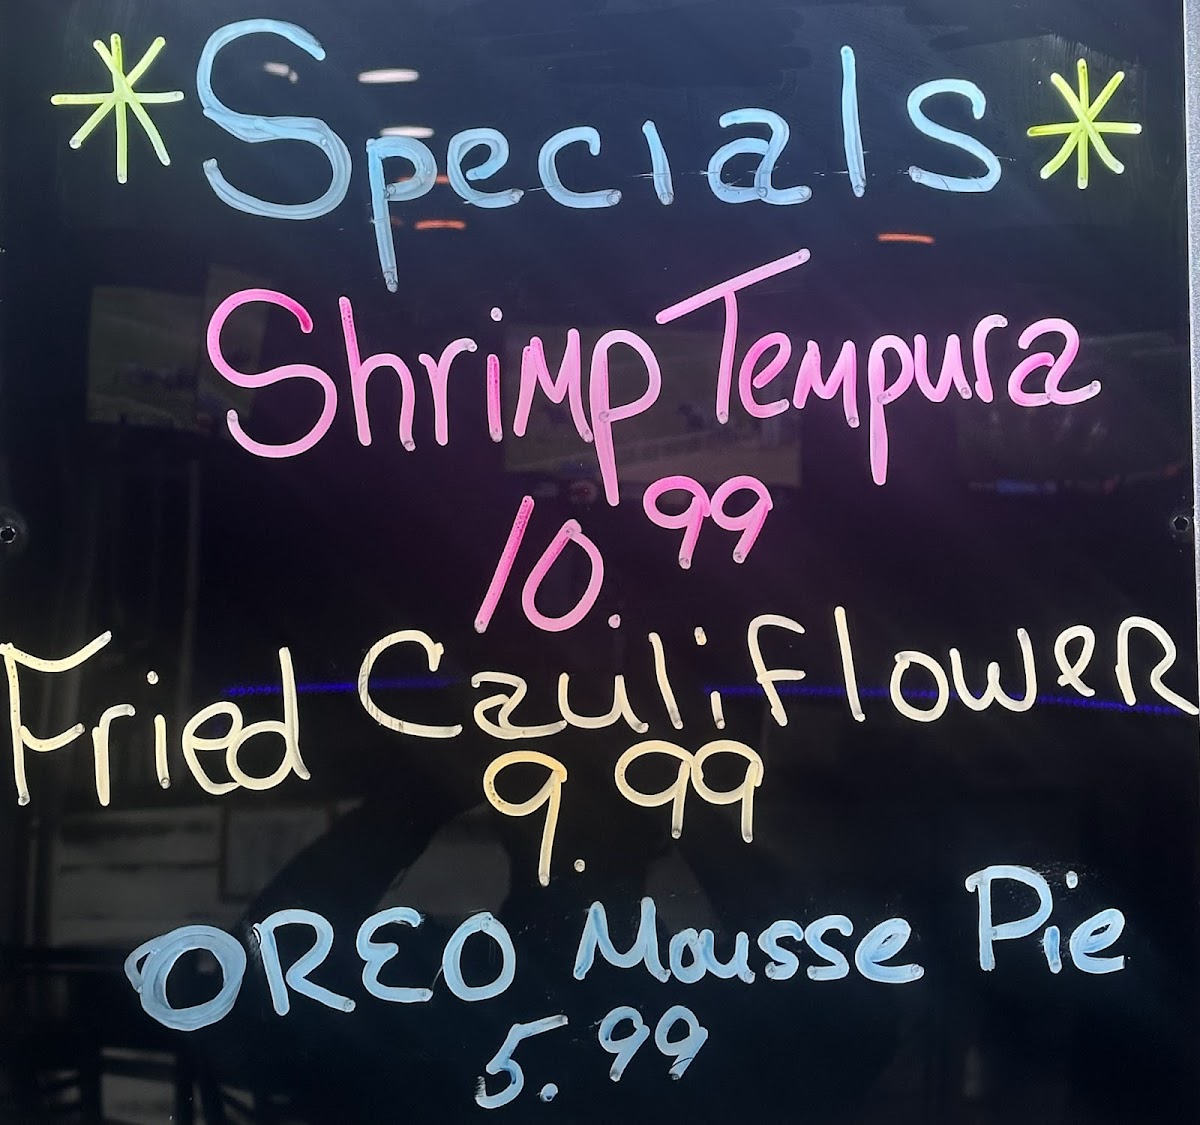 *Specials*
Shrimp Tempura
10.99
Fried Cauliflower
9.99
OREO Mousse Pie
5.99